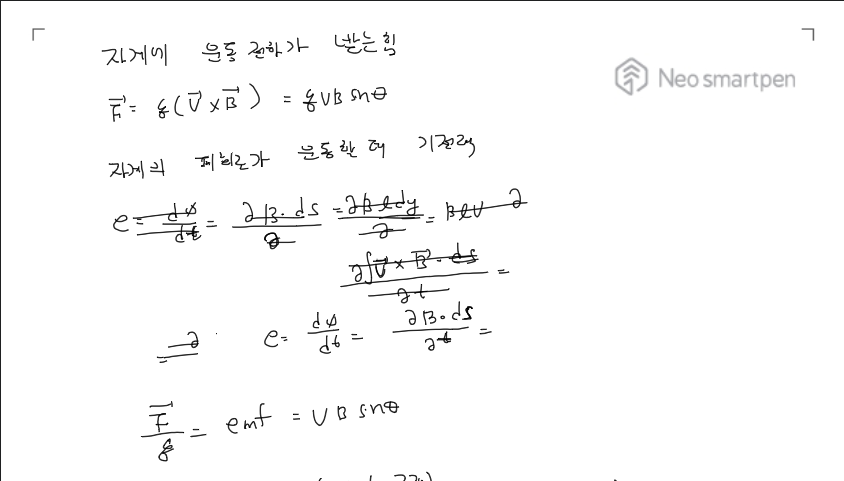 자계에 운동 전하가 받는 힘
Neo smartpen
F⃗ = q(V⃗ × B⃗) = qVB sinθ
자계의 폐회로가 운동할 때 기전력
e = dφ/dt = ∂B·ds/∂ = ∂Bℓdy/∂ = Bℓv ∂
∂∫V⃗ × B⃗·ds/∂t =
= ∂ e = dφ/dt = ∂B·ds/∂t =
F⃗/q = emf = VB sinθ